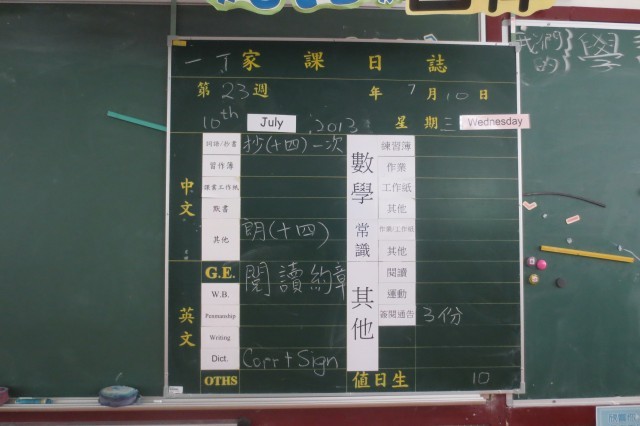 一丁家課日誌
第23週 年7月10日
10th July, 2013 星期三 Wednesday
中文
詞語/抄書 抄(十四)一次
習作簿
課書工作紙
默書
其他 朗(十四)
英文
G.E. 閱讀約章
W.B.
Penmanship
Writing
Dict. Corr + Sign
OTHS
數學
練習簿
作業
工作紙
其他
常識
作業/工作紙
其他
其他
閱讀
運動
簽閱通告 3份
值日生 10
我們的 學